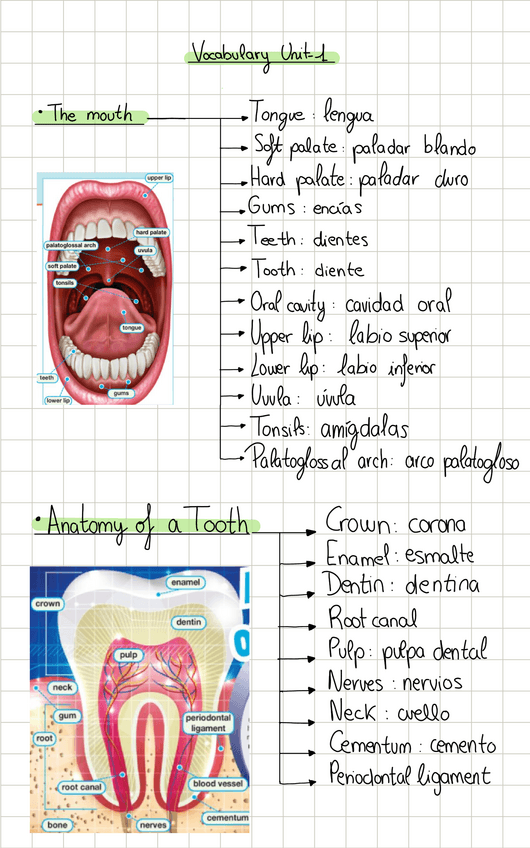 Vocabulary Unit-1
• The mouth
Tongue : lengua
Soft palate : paladar blando
Hard palate : paladar duro
Gums : encías
Teeth : dientes
Tooth : diente
Oral cavity : cavidad oral
Upper lip : labio superior
Lower lip : labio inferior
Uvula : úvula
Tonsils : amígdalas
Palatoglossal arch : arco palatogloso
upper lip
hard palate
palatoglossal arch
uvula
soft palate
tonsils
tongue
teeth
gums
lower lip
• Anatomy of a Tooth
Crown : corona
Enamel : esmalte
Dentin : dentina
Root canal
Pulp : pulpa dental
Nerves : nervios
Neck : cuello
Cementum : cemento
Periodontal ligament
enamel
crown
dentin
pulp
neck
gum
periodontal
ligament
root
root canal
blood vessel
cementum
bone
nerves